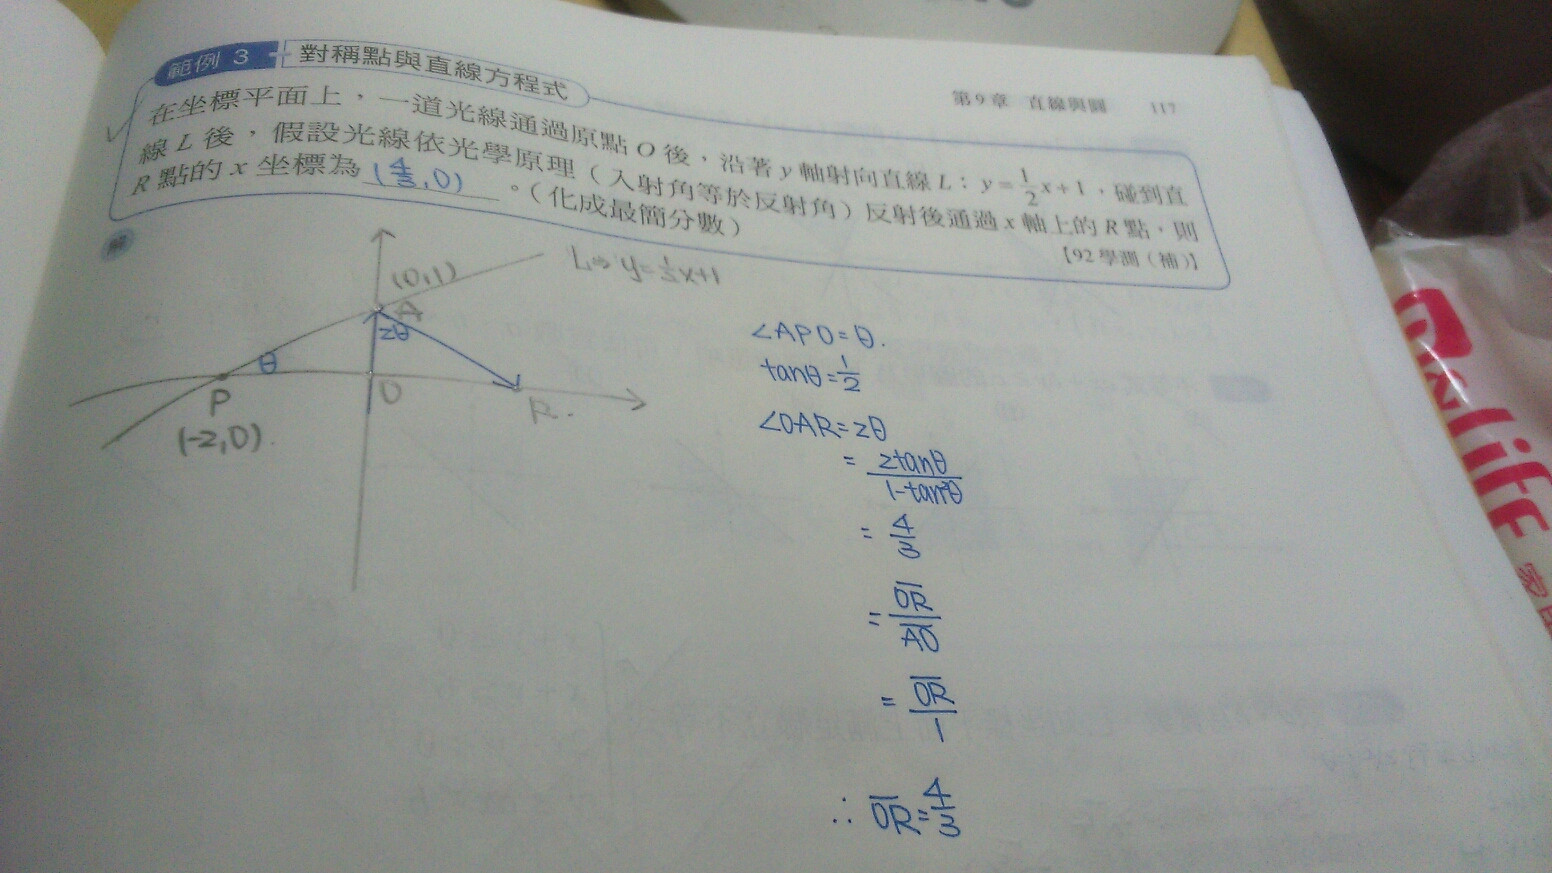 範例 3 對稱點與直線方程式
第9章 直線與圓 117
在坐標平面上，一道光線通過原點 O 後，沿著 y 軸射向直線 L：y=1/2x+1，碰到直
線 L 後，假設光線依光學原理（入射角等於反射角）反射後通過 x 軸上的 R 點，則
R 點的 x 坐標為 (4/3,0) 。（化成最簡分數）
【92 學測（補）】
解
(0,1)
L⇒y=1/2x+1
A
2θ
θ
P
O
R.
(-2,0).
∠APO=θ.
tanθ=1/2
∠OAR=2θ
=2tanθ/1-tan²θ
=4/3
=OR/AO
=OR/1
∴OR=4/3
life
家